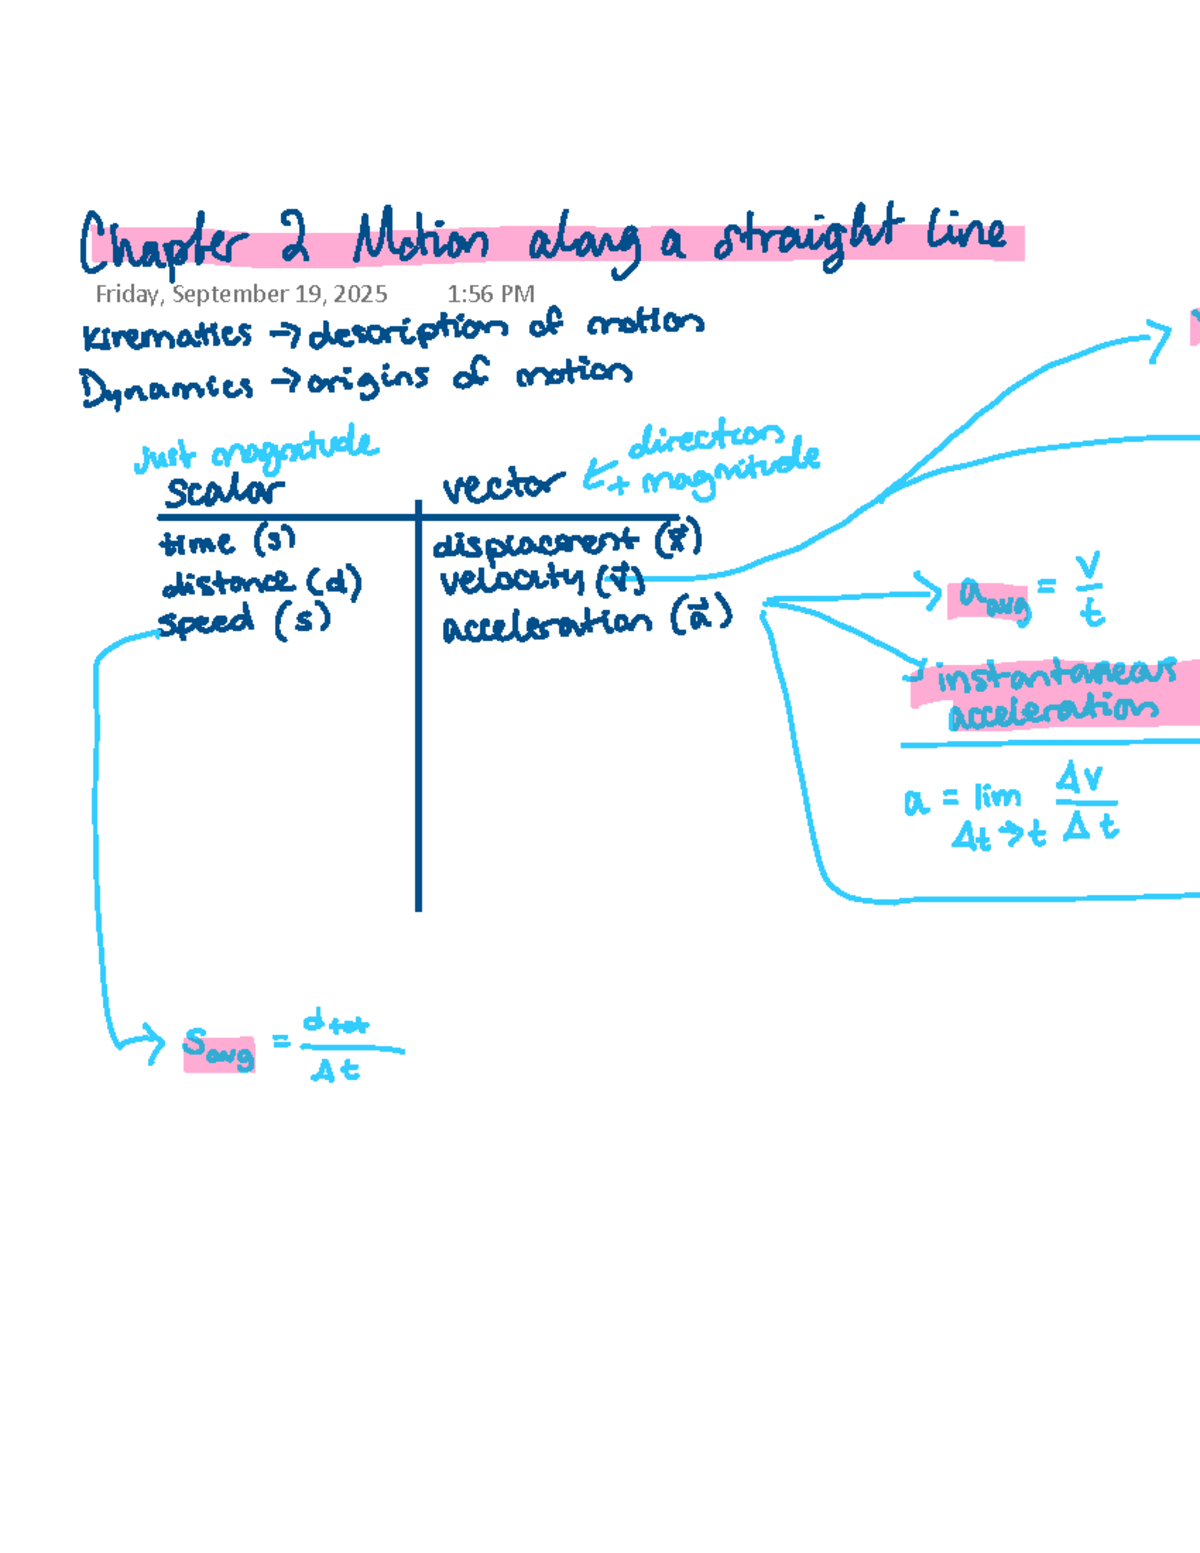 Chapter 2 Motion along a straight line
Friday, September 19, 2025 1:56 PM
Kinematics → description of motion
Dynamics → origins of motion
Just magnitude
direction
+ magnitude
scalar
vector
time (s)
distance (d)
speed (s)
displacment (x⃗)
velocity (v⃗)
acceleration (a⃗)
a avg = v/t
instantaneous
acceleration
a = lim Δv/Δt
Δt → t
Savg = dtot/Δt